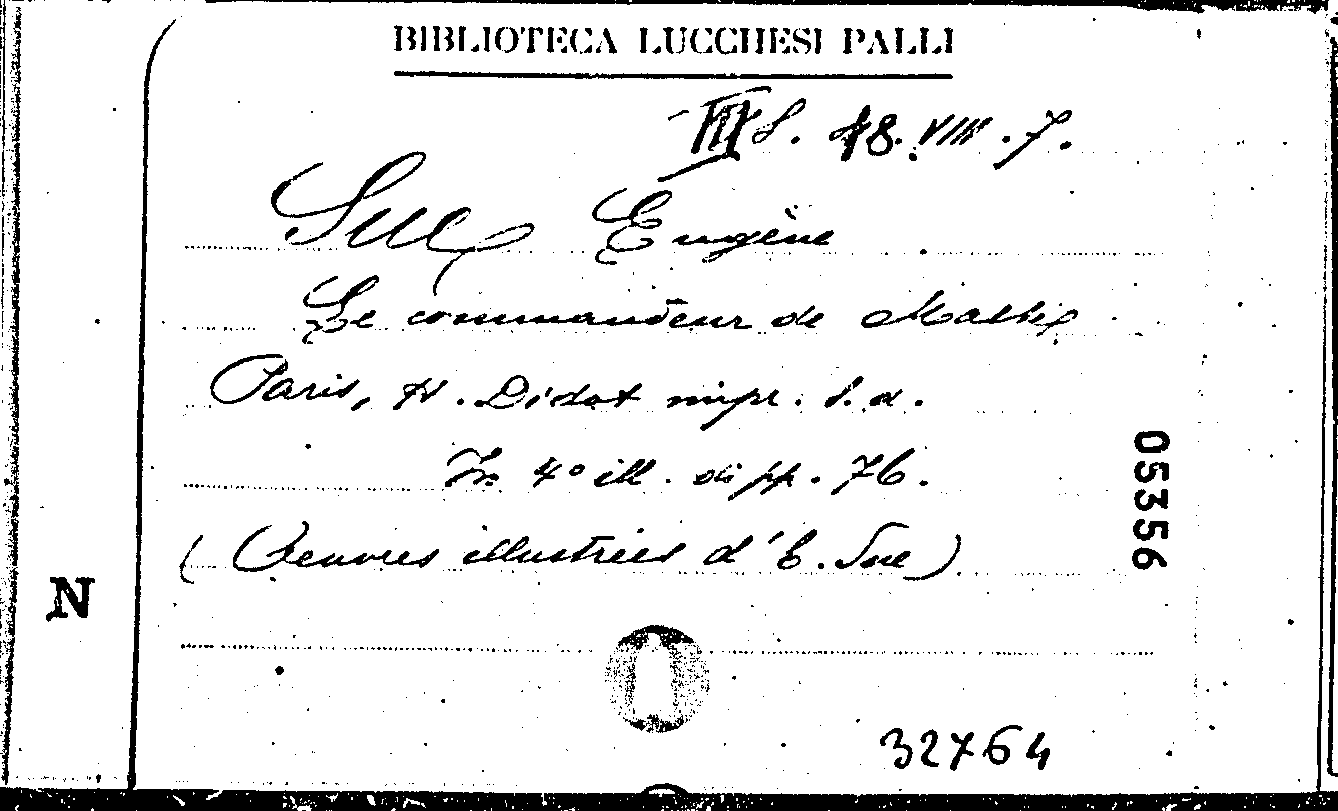 BIBLIOTECA LUCCHESI PALLI
S. 48. VIII. 7.
Sue Eugène
Le commandeur de Malte
Paris, H. Didot impr. s. d.
In 4° ill. di pp. 76.
(Oeuvres illustrées d'E. Sue)
05356
N
32764